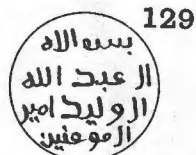 129
بسم الله
عبد الله
الوليد امير
المومنين